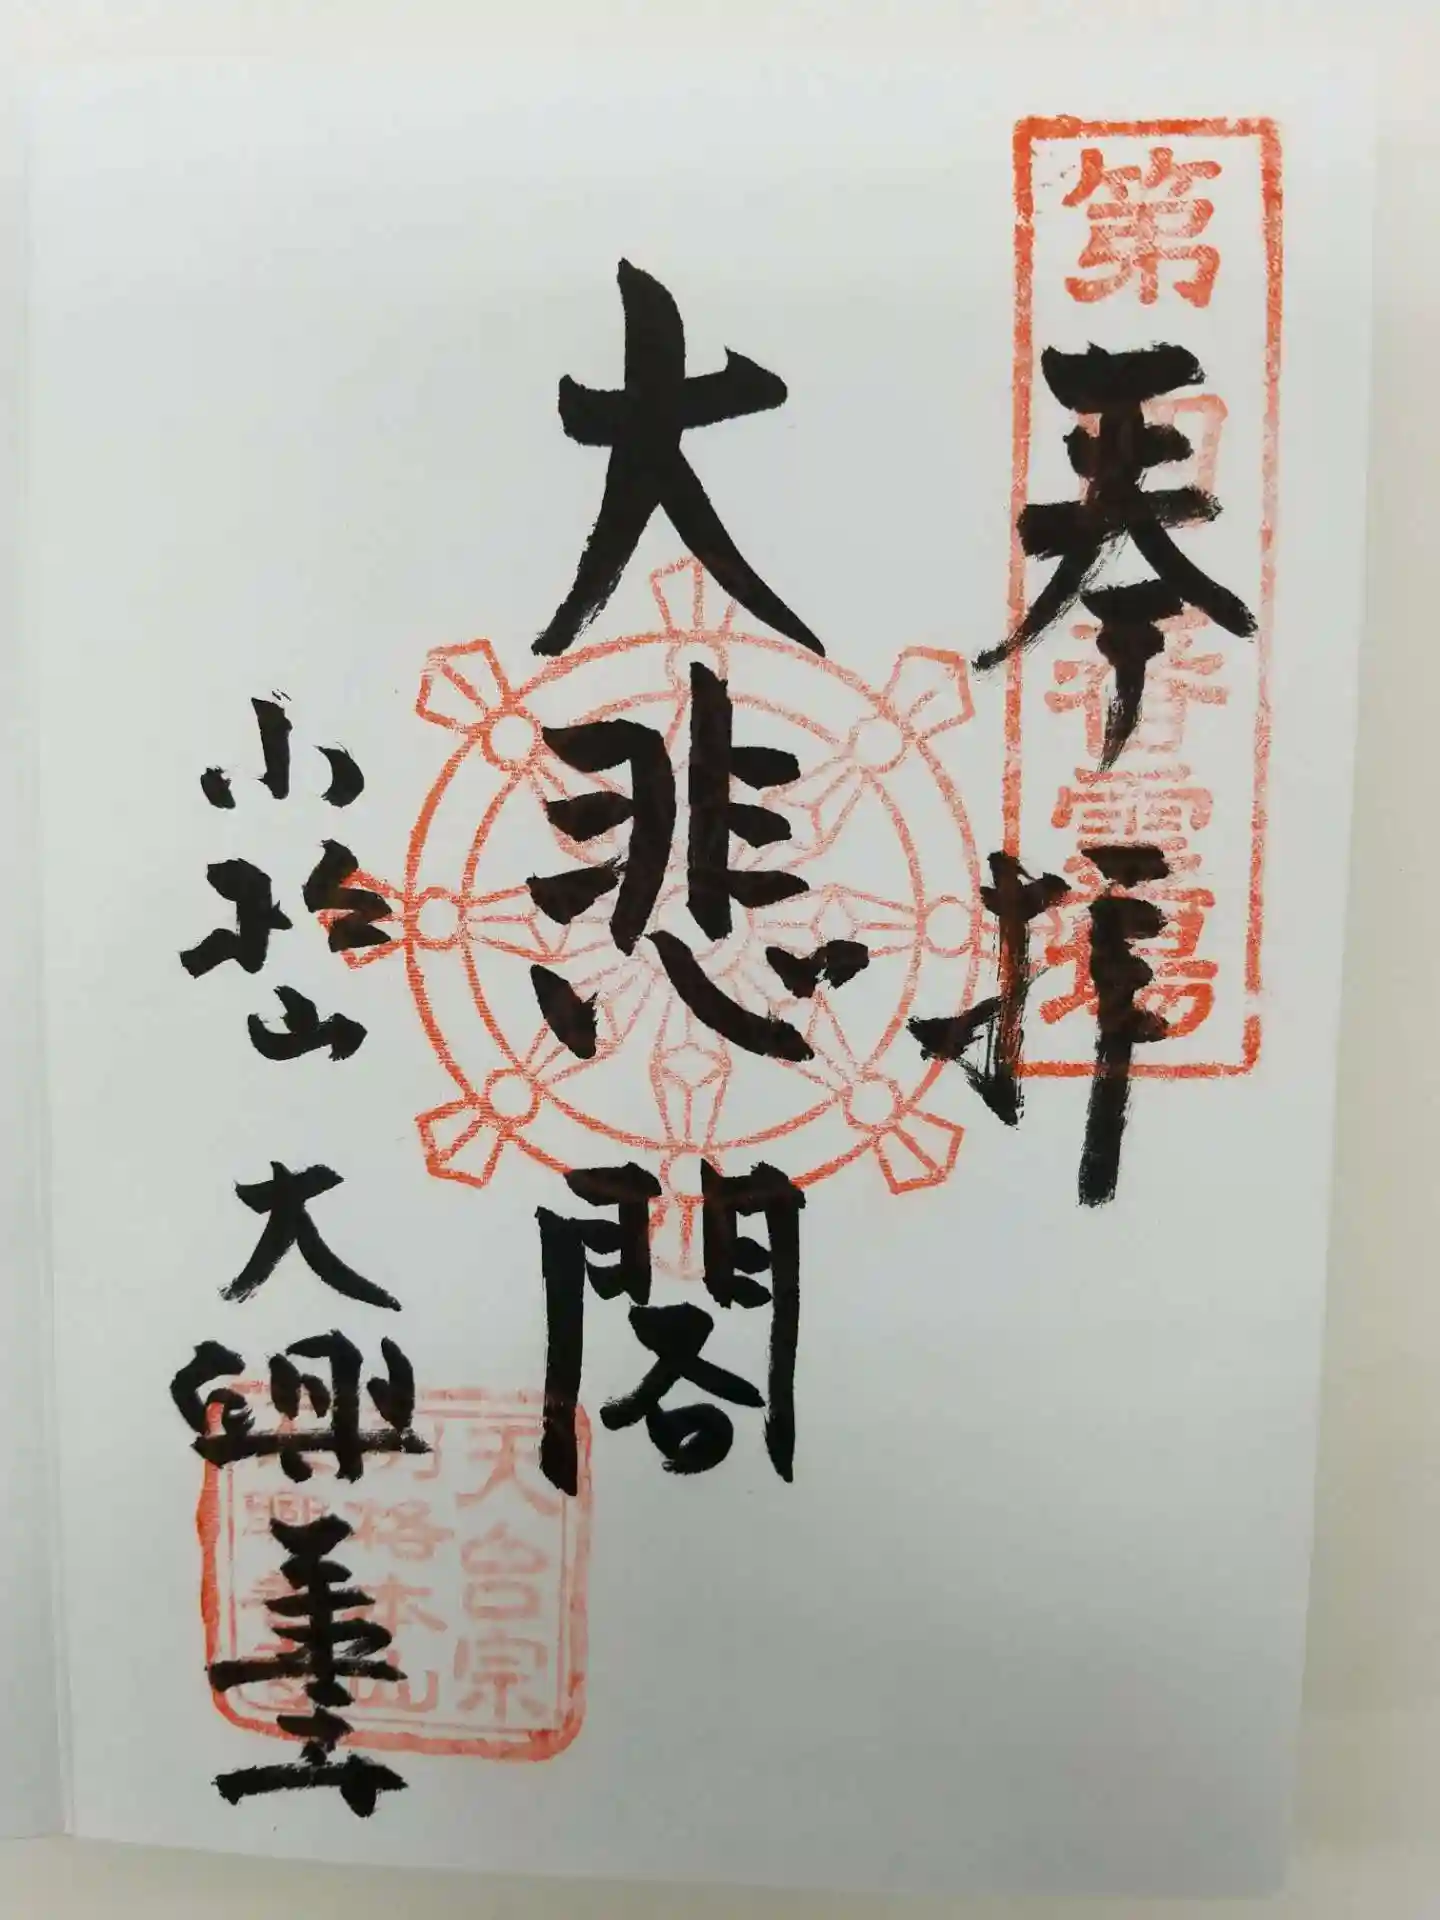 第四番霊場
奉拝
大悲閣
小松山 大興善寺
天台宗
別格本山
大興善寺